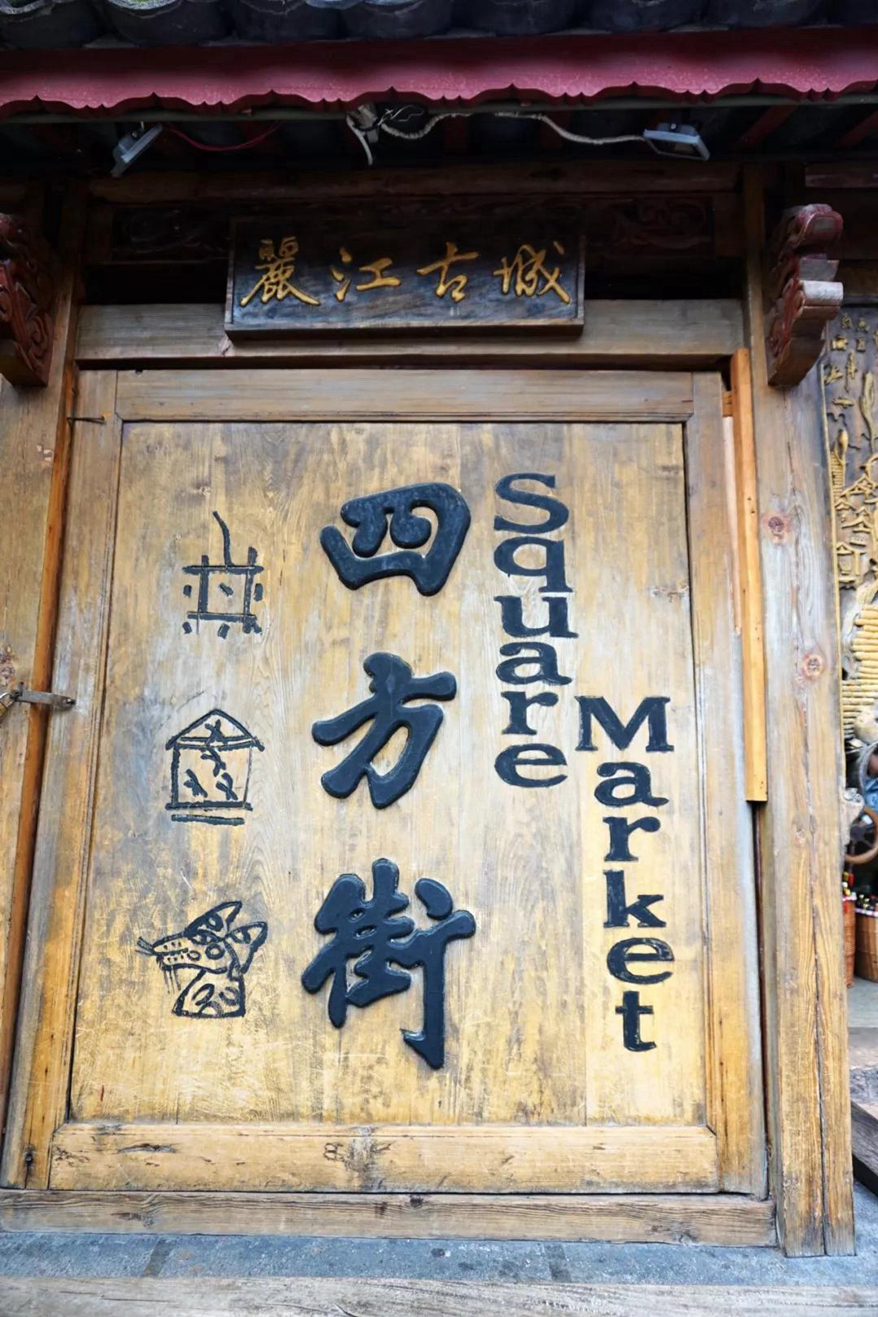 麗江古城
四方街
Square
Market